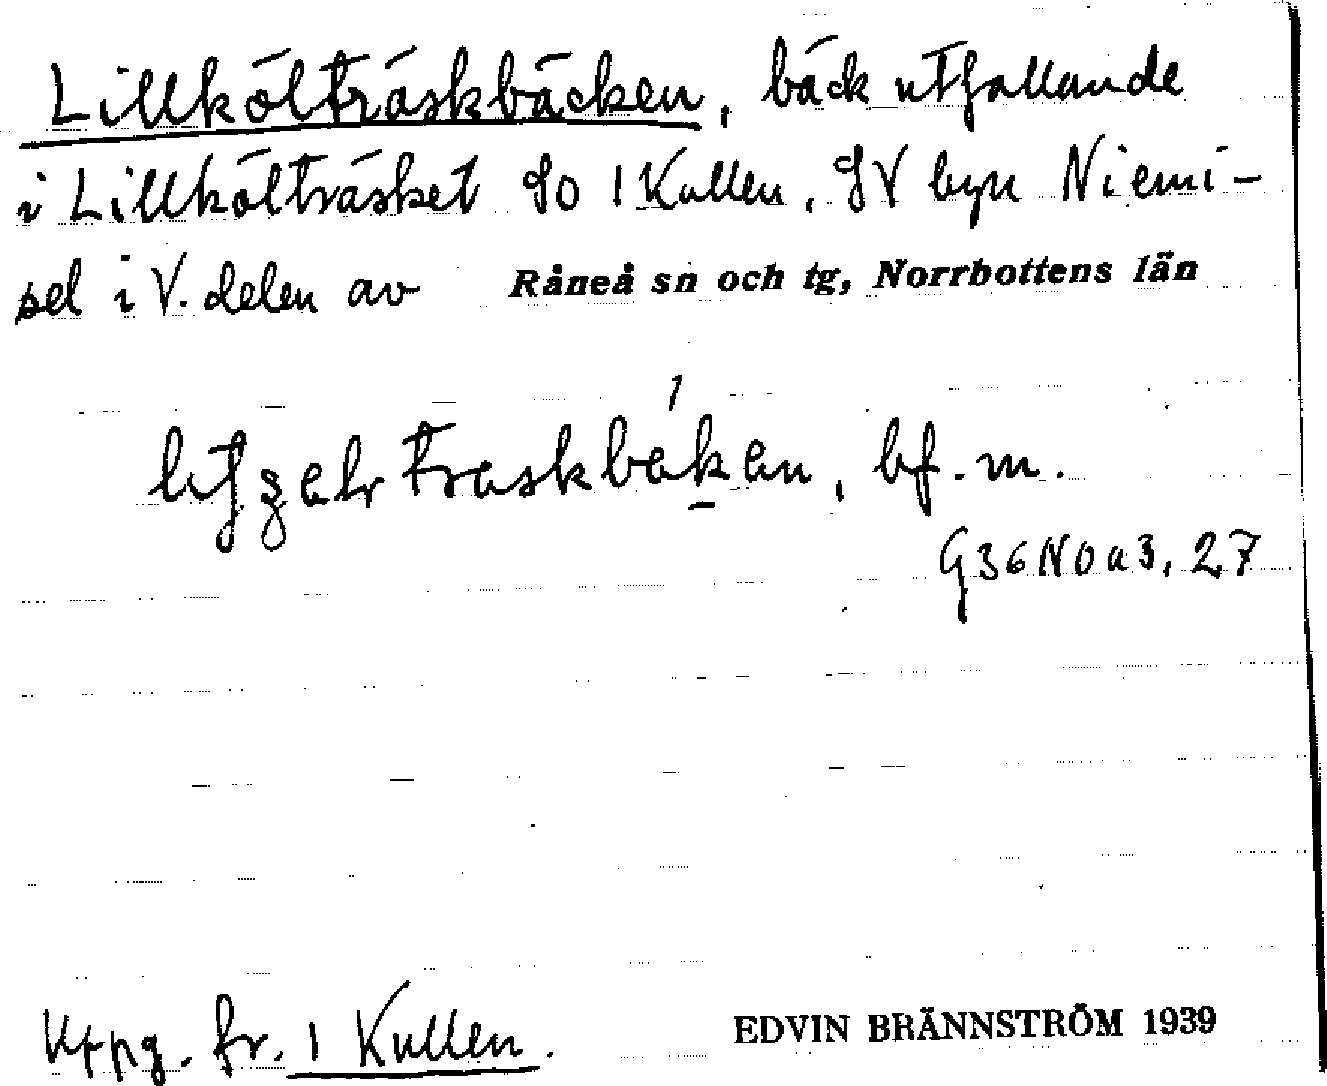 Lillkölträskbäcken, bäck utfallande
i Lillkölträsket SO 1 Kullen, SV byn Niemi-
sel i V. delen av Råneå sn och tg, Norrbottens län
bf. m.
G36NOa3, 27
Uppg. fr. 1 Kullen. EDVIN BRÄNNSTRÖM 1939